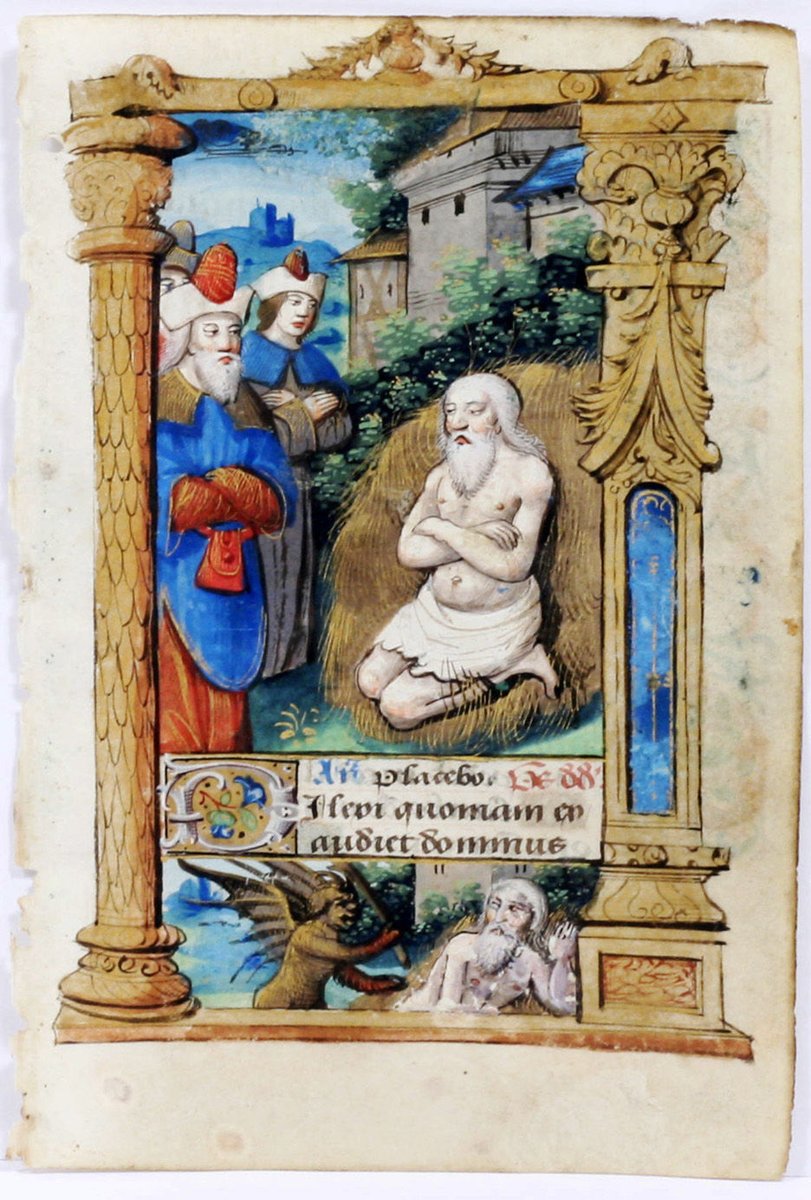 Añ Placebo. Ps dd
DIlexi quoniam ex
audiet dominus